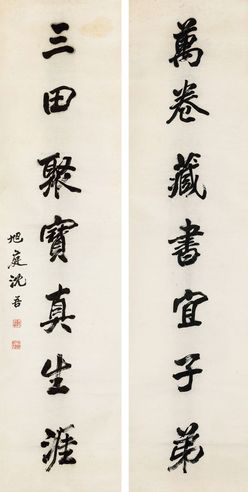 萬卷藏書宜子弟
三田聚寶真生涯
旭庭沈吾